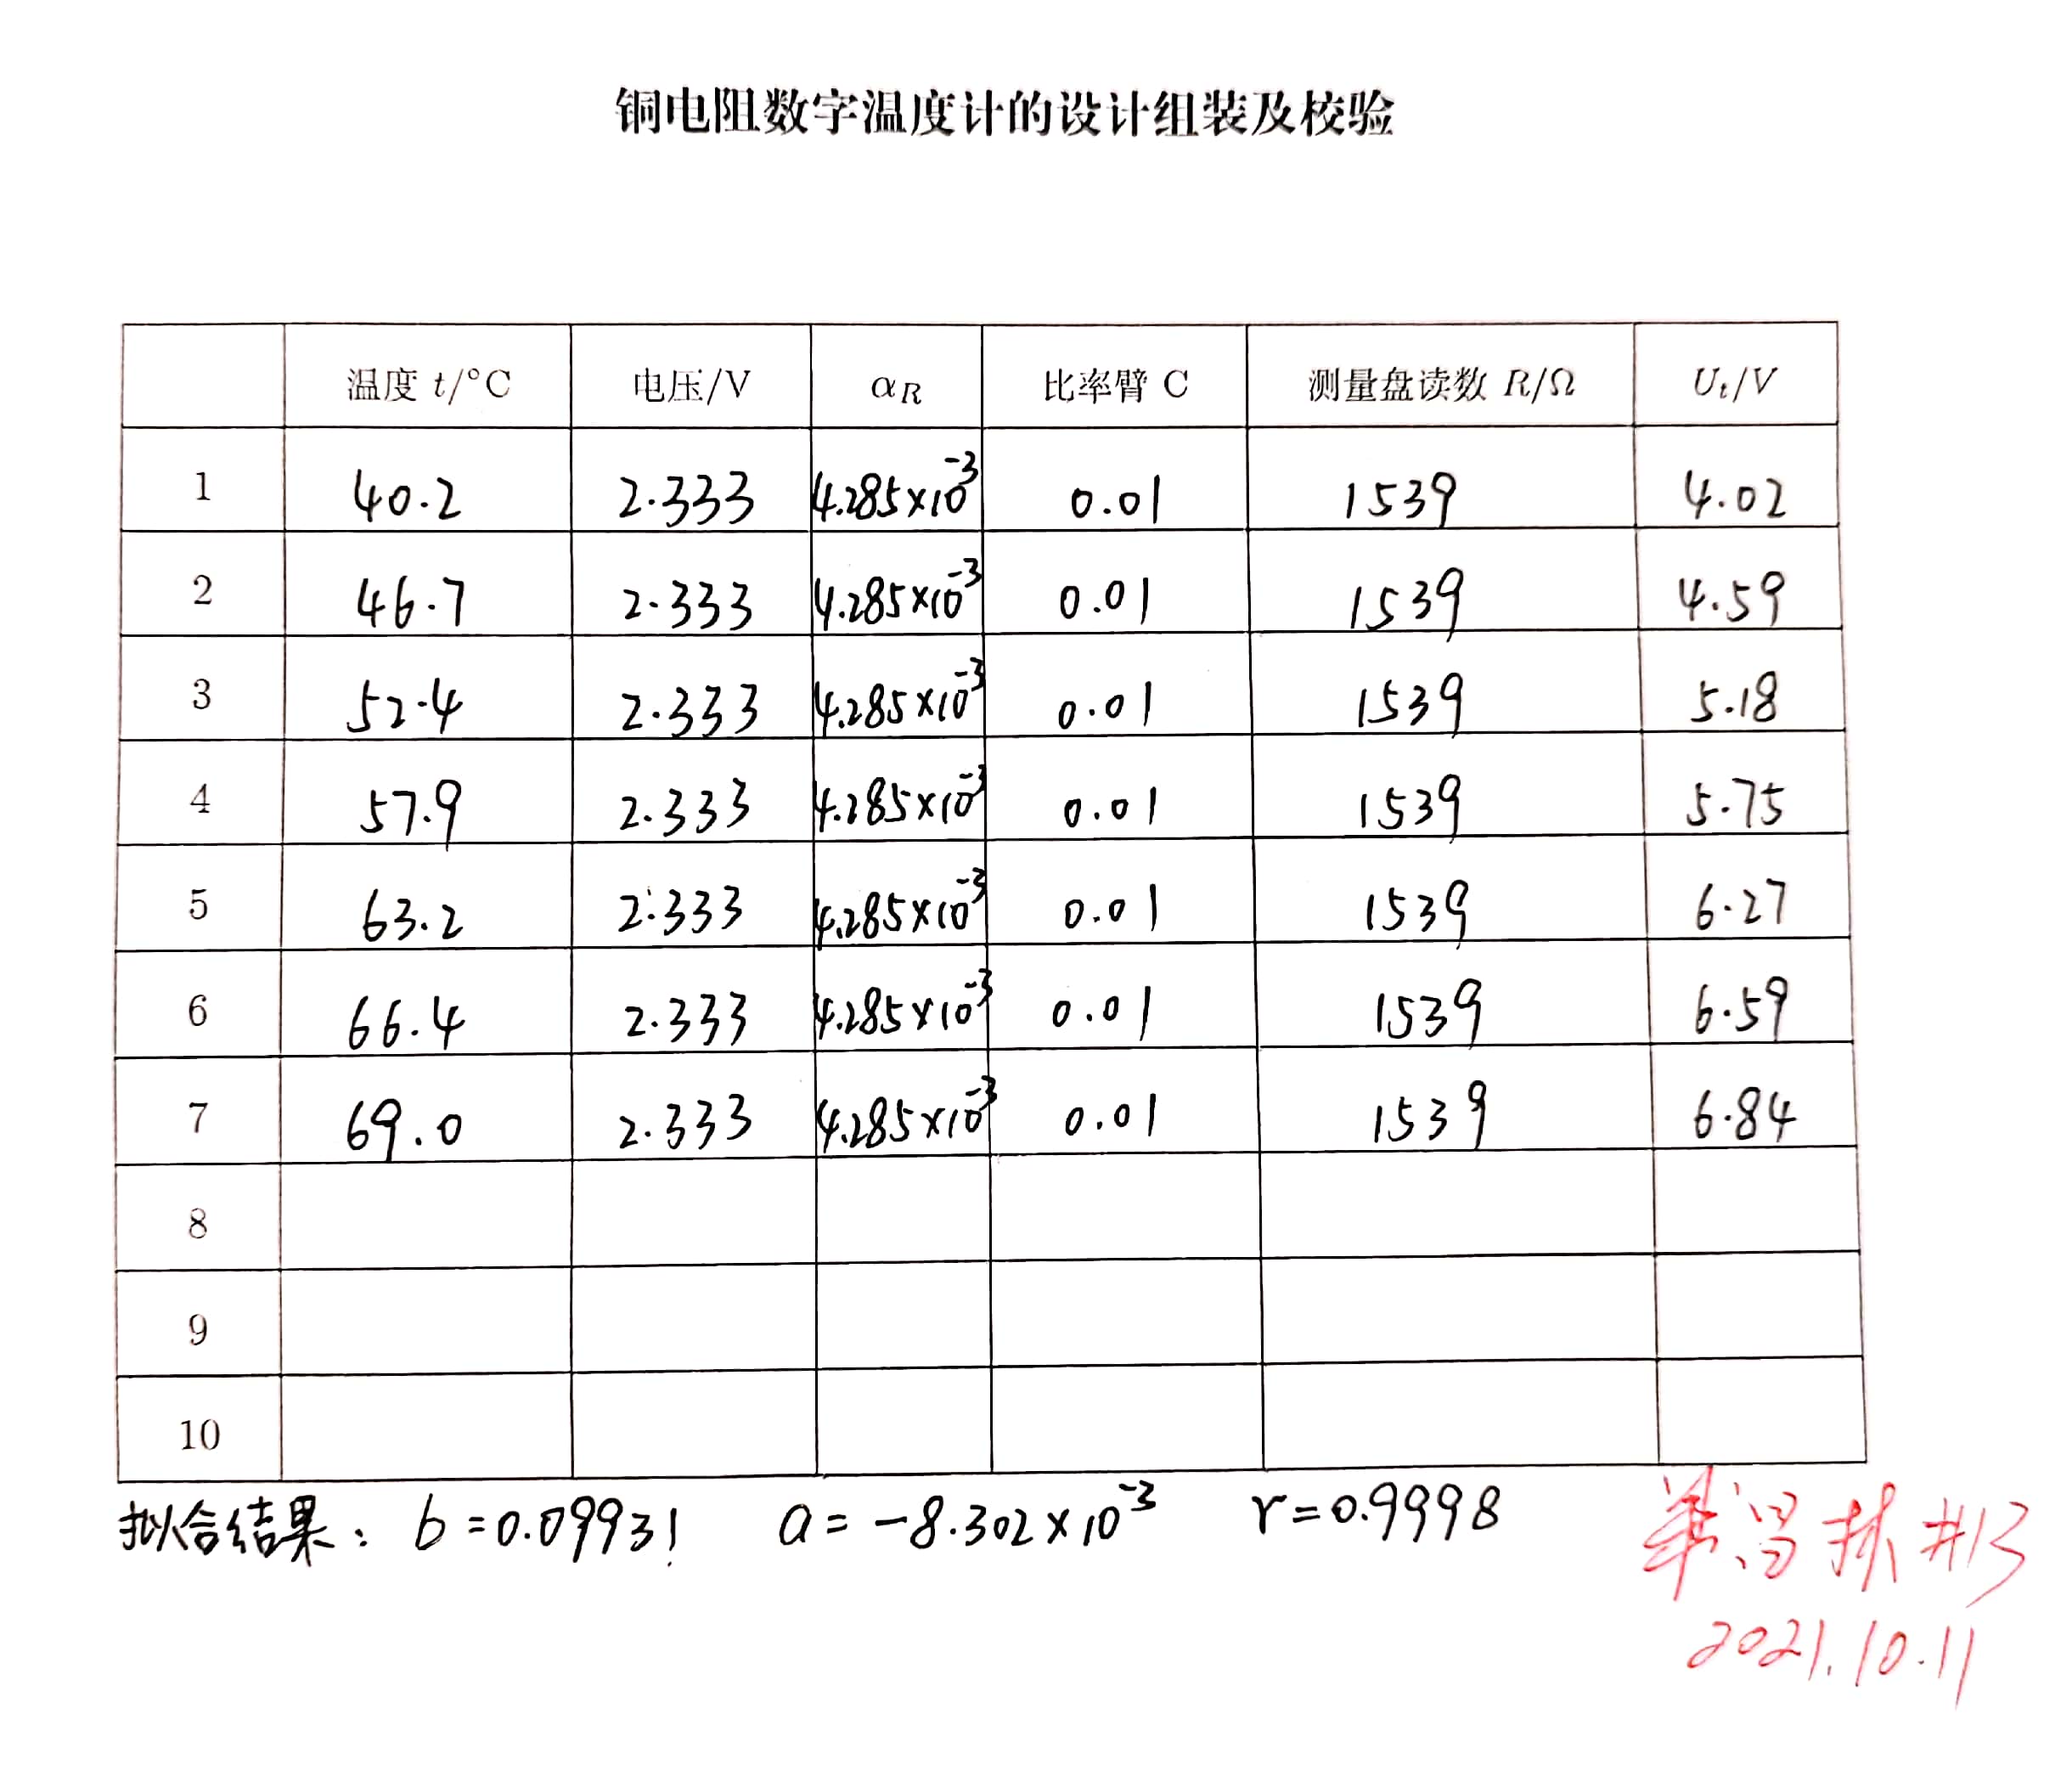 铜电阻数字温度计的设计组装及校验
温度 t/°C 电压/V αR 比率臂 C 测量盘读数 R/Ω Ut/V
1 40.2 2.333 4.285×10⁻³ 0.01 1539 4.02
2 46.7 2.333 4.285×10⁻³ 0.01 1539 4.59
3 52.4 2.333 4.285×10⁻³ 0.01 1539 5.18
4 57.9 2.333 4.285×10⁻³ 0.01 1539 5.75
5 63.2 2.333 4.285×10⁻³ 0.01 1539 6.27
6 66.4 2.333 4.285×10⁻³ 0.01 1539 6.59
7 69.0 2.333 4.285×10⁻³ 0.01 1539 6.84
8
9
10
拟合结果: b=0.09931 a=-8.302×10⁻³ r=0.9998
#13
2021.10.11